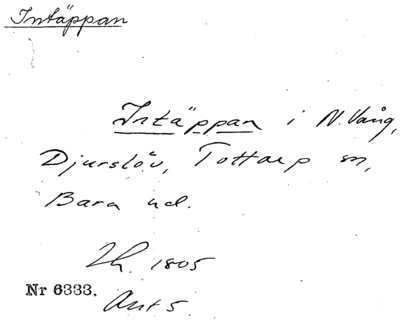 Intäppan
Intäppan i N. Vång,
Djurslöv, Tottarp sn,
Bara hd.
Lh. 1805
Nr 6333.
Ant 5.